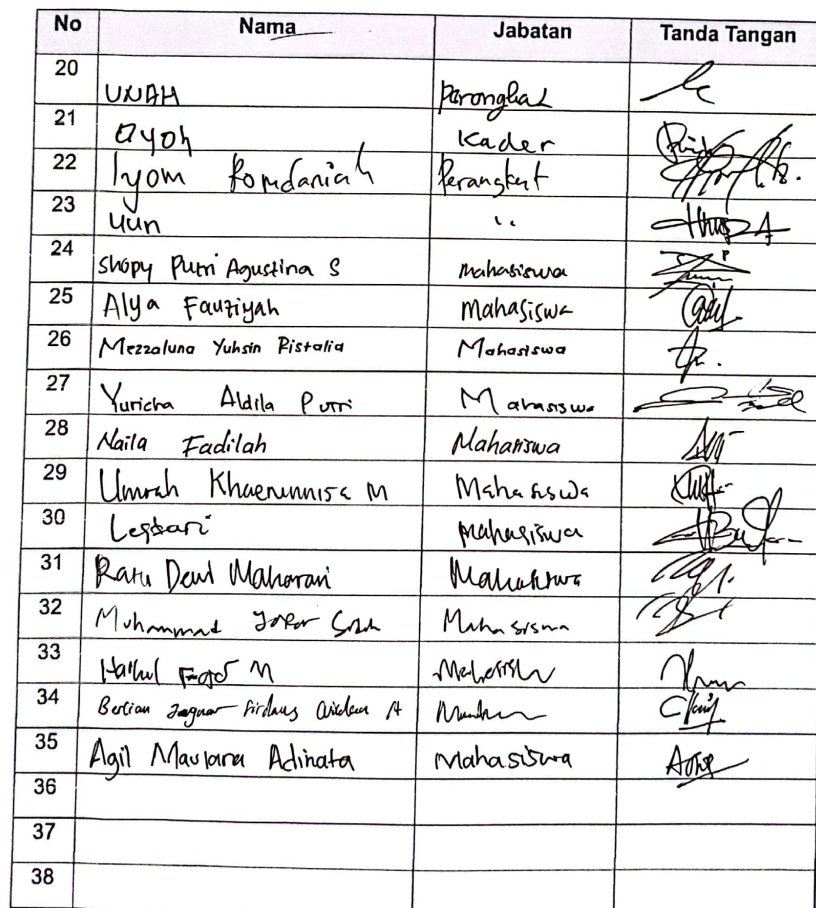 No Nama Jabatan Tanda Tangan
20 UNAH Perangkat
21 Oyoh Kader
22 Iyom Romdaniah Perangkat
23 Yun ''
24 Shopy Putri Agustina S Mahasiswa
25 Alya Fauziyah Mahasiswa
26 Mezzaluna Yuhsin Ristalia Mahasiswa
27 Yuricha Aldila Putri Mahasiswa
28 Naila Fadilah Mahasiswa
29 Umrah Khaerunnisa M Mahasiswa
30 Lestari Mahasiswa
31 Ratu Dewi Maharani Mahasiswa
32 Muhammad Mahasiswa
33 M Mahasiswa
34 Firdaus A
35 Agil Maulana Adinata Mahasiswa
36
37
38